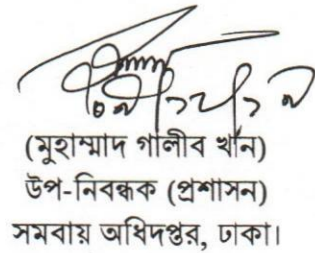 (মুহাম্মাদ গালীব খাঁন)
উপ-নিবন্ধক (প্রশাসন)
সমবায় অধিদপ্তর, ঢাকা।